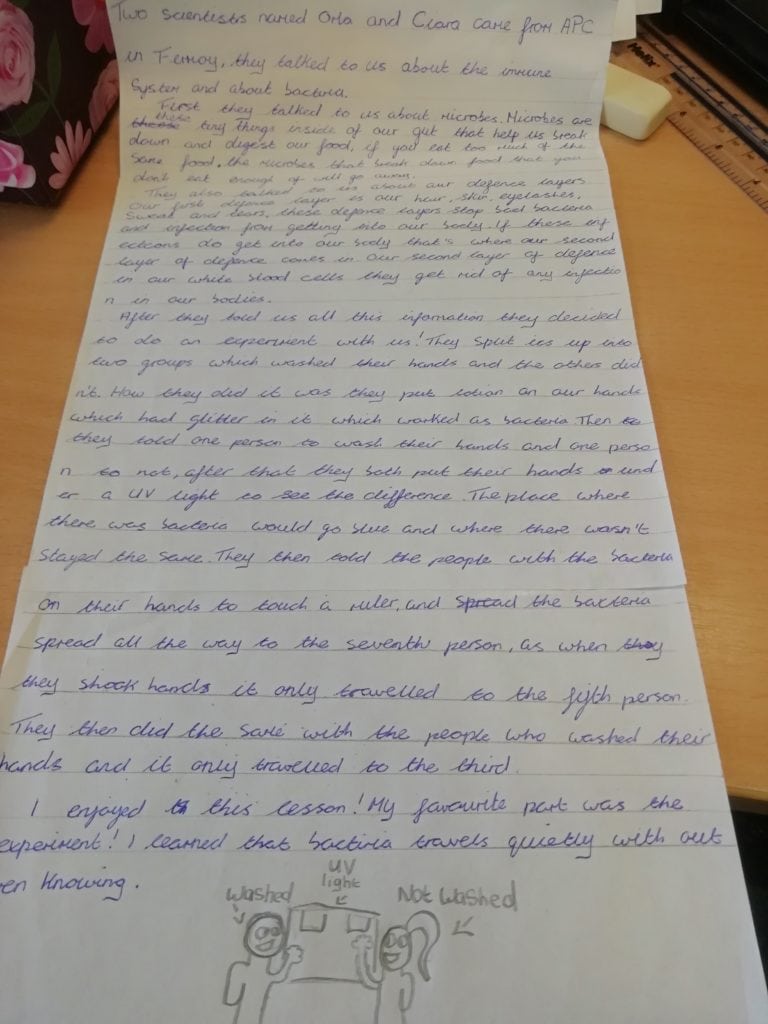 Two scientists named Orla and Ciara came from APC
in Fermoy, they talked to us about the immune
System and about bacteria.
First they talked to us about microbes. Microbes are
these tiny things inside of our gut that help us break
down and digest our food, if you eat too much of the
same food, the microbes that break down food that you
don't eat enough of will go away.
They also talked to us about our defence layers
Our first defence layer is our hair, skin, eyelashes,
Sweat and tears, these defence layers stop bad bacteria
and infection from getting into our body. If these inf
ections do get into our body that's where our second
layer of defence comes in our second layer of defence
in our white blood cells they get rid of any infectio
n in our bodies.
After they told us all this infomation they decided
to do an experiment with us! They split us up into
two groups which washed their hands and the others did
n't. How they did it was they put lotion on our hands
which had glitter in it which worked as bacteria. Then
they told one person to wash their hands and one perso
n to not, after that they both put their hands und
er a UV light to see the difference. The place where
there was bacteria would go blue and where there wasn't
Stayed the same. They then told the people with the bacteria
on their hands to touch a ruler, and spread the bacteria
spread all the way to the seventh person, as when they
they shook hands it only travelled to the fifth person.
They then did the same with the people who washed their
hands and it only travelled to the third.
I enjoyed this lesson! My favourite part was the
experiment! I learned that bactiria travels quietly with out
en Knowing.
UV
light
Washed
Not Washed
Helix